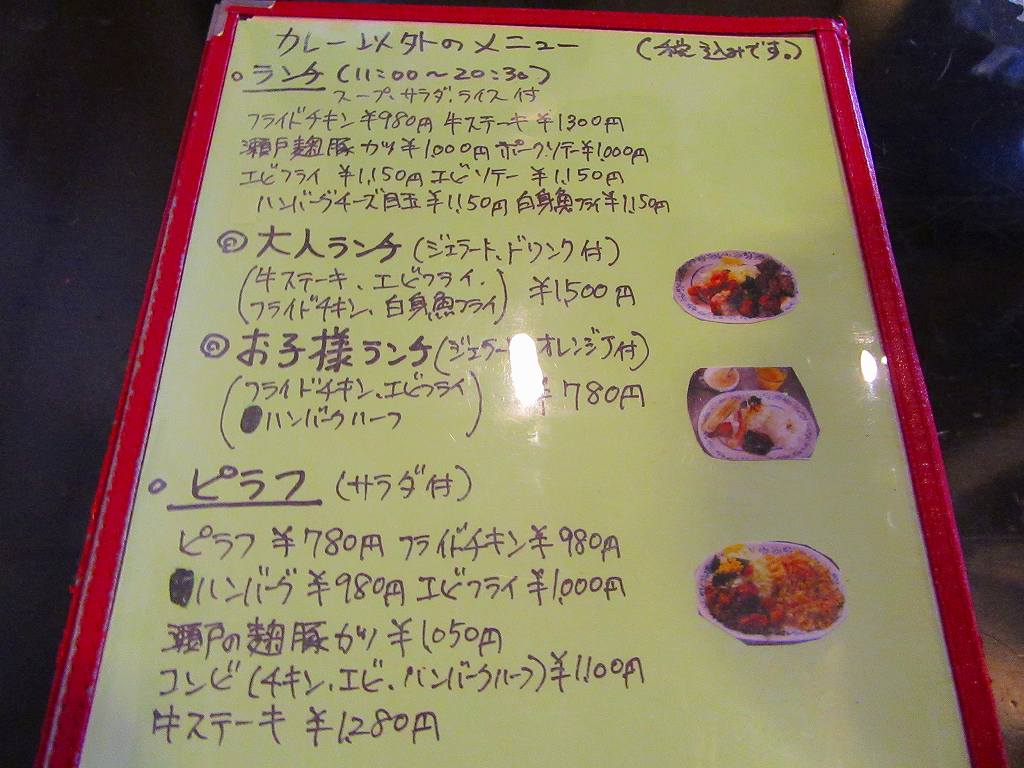 カレー以外のメニュー (税込みです。)
○ランチ (11:00〜20:30)
スープ、サラダ、ライス付
フライドチキン ¥980円 牛ステーキ ¥1300円
瀬戸麹豚カツ ¥1,000円 ポークソテー ¥1,000円
エビフライ ¥1,150円 エビソテー ¥1,150円
ハンバーグチーズ目玉 ¥1,150円 白身魚フライ ¥1,150円
◎大人ランチ (ジェラート、ドリンク付)
(牛ステーキ、エビフライ、
フライドチキン、白身魚フライ) ¥1,500円
◎お子様ランチ (ジェラート オレンジJ付)
(フライドチキン、エビフライ
ハンバーグハーフ) ¥780円
○ピラフ (サラダ付)
ピラフ ¥780円 フライドチキン ¥980円
ハンバーグ ¥980円 エビフライ ¥1,000円
瀬戸の麹豚カツ ¥1,050円
コンビ (チキン、エビ、ハンバーグハーフ) ¥1,100円
牛ステーキ ¥1,280円